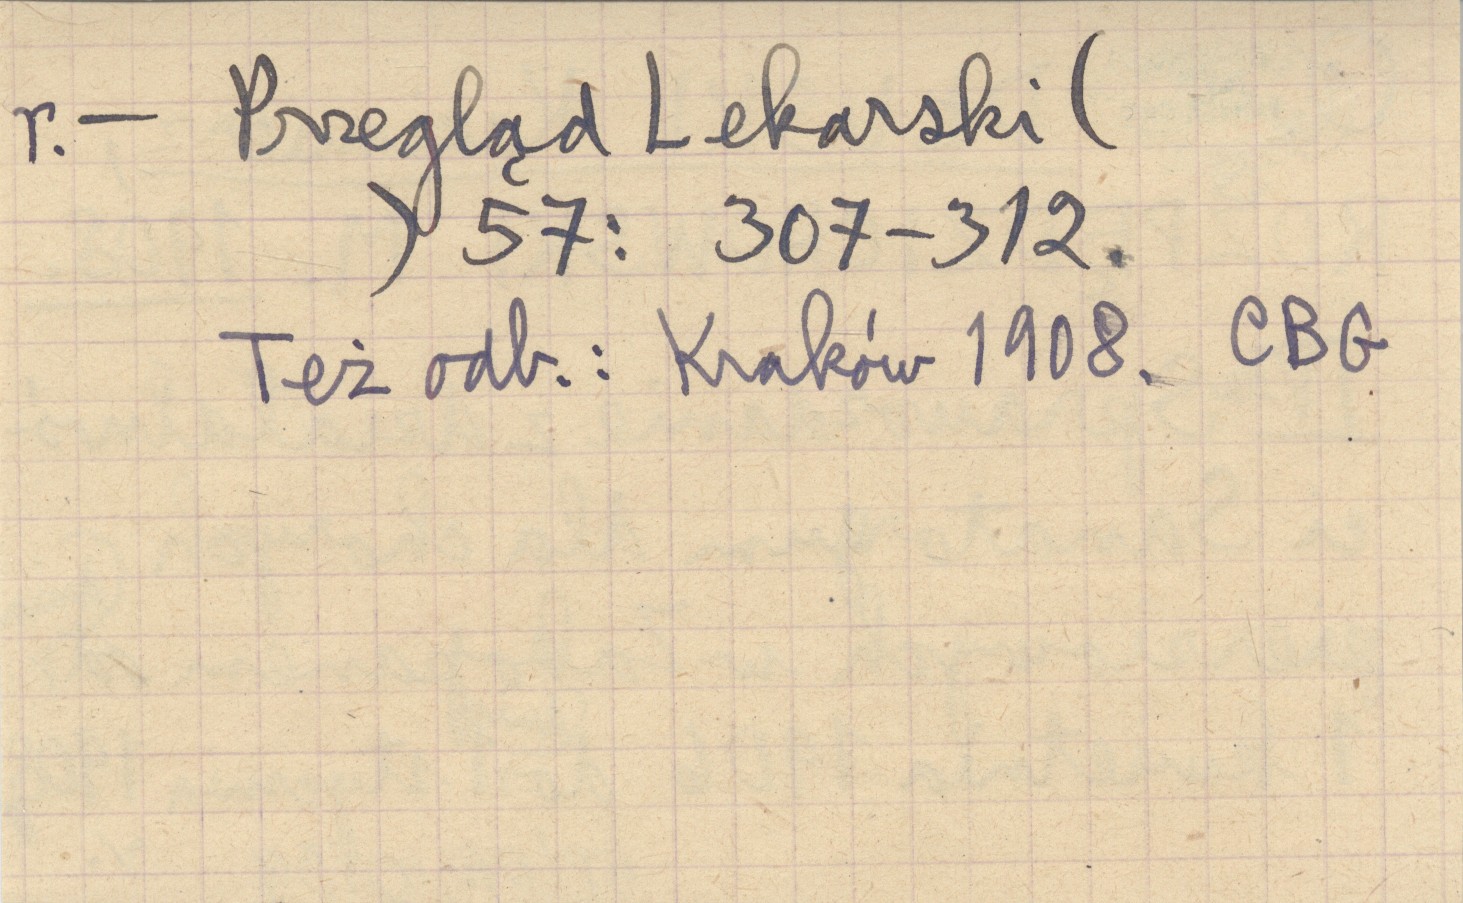 r. — Przegląd Lekarski (
) 57: 307-312.
Też odb.: Kraków 1908. CBG